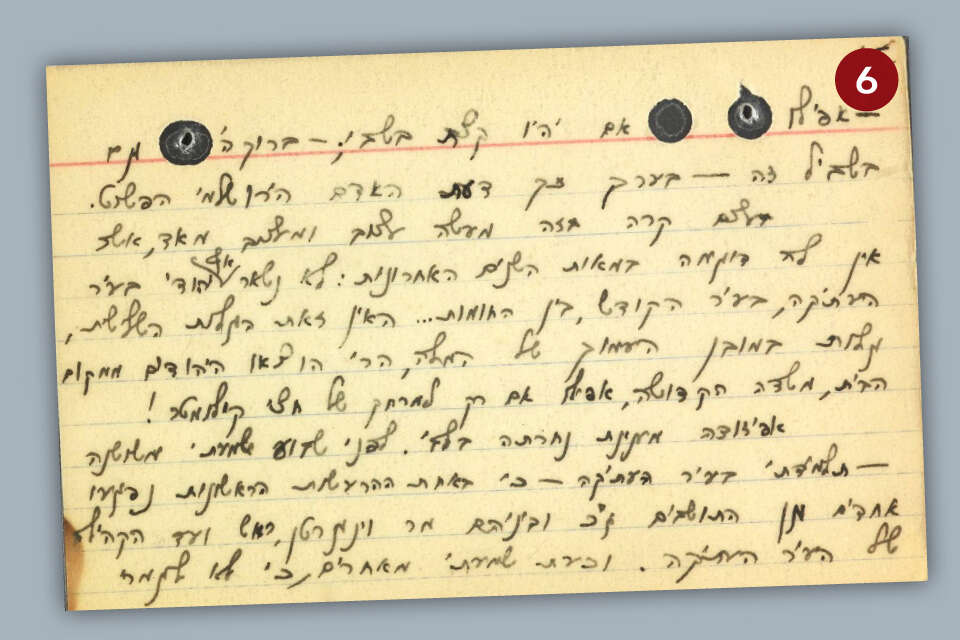 6
— אפילו אם יהיו קצת בשבי; — ברוך ה' גם
בשביל זה — בערך כך דעת האדם הירושלמי הפשוט.
בעצם קרה בזה מעשה עצוב ומעציב מאד, אשר
אין לו דוגמה במאות השנים האחרונות: לא נשאר אף יהודי בעיר
העתיקה, בעיר הקודש, בין החומות... האין זאת כגלות השלישית,
גלות במובן העמוק של המלה, הרי הוצאו היהודים ממקום
הבית, משדה הקדושה, אפילו אם רק למרחק של חצי קילומטר!
אפיזודה מענינת נחרתה בלבי. לפני שבוע שמעתי משושנה
— תלמידתי בעיר העתיקה — כי באחת ההרעשות הראשונות נפצעו
אחדים מן התושבים ג"כ וביניהם מר וינגרטן, ראש ועד הקהילה
של העיר העתיקה. וכעת שמעתי מאחרים, כי לא לגמרי